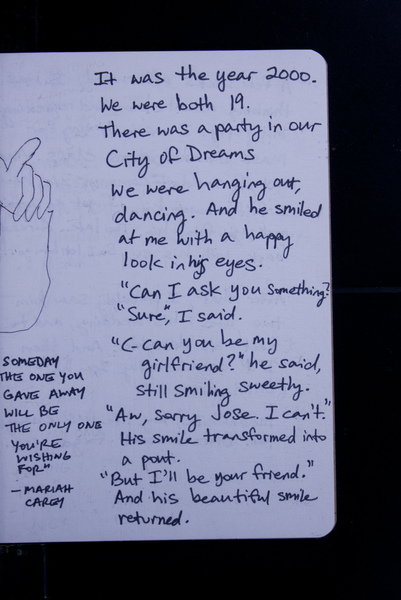 It was the year 2000.
We were both 19.
There was a party in our
City of Dreams
We were hanging out,
dancing. And he smiled
at me with a happy
look in his eyes.
"Can I ask you something?
"Sure", I said.
"C-can you be my
girlfriend?" he said,
still smiling sweetly.
"Aw, sorry Jose. I can't."
His smile transformed into
a pout.
"But I'll be your friend."
And his beautiful smile
returned.
SOMEDAY
THE ONE YOU
GAVE AWAY
WILL BE
THE ONLY ONE
YOU'RE
WISHING
FOR"
- MARIAH
CAREY